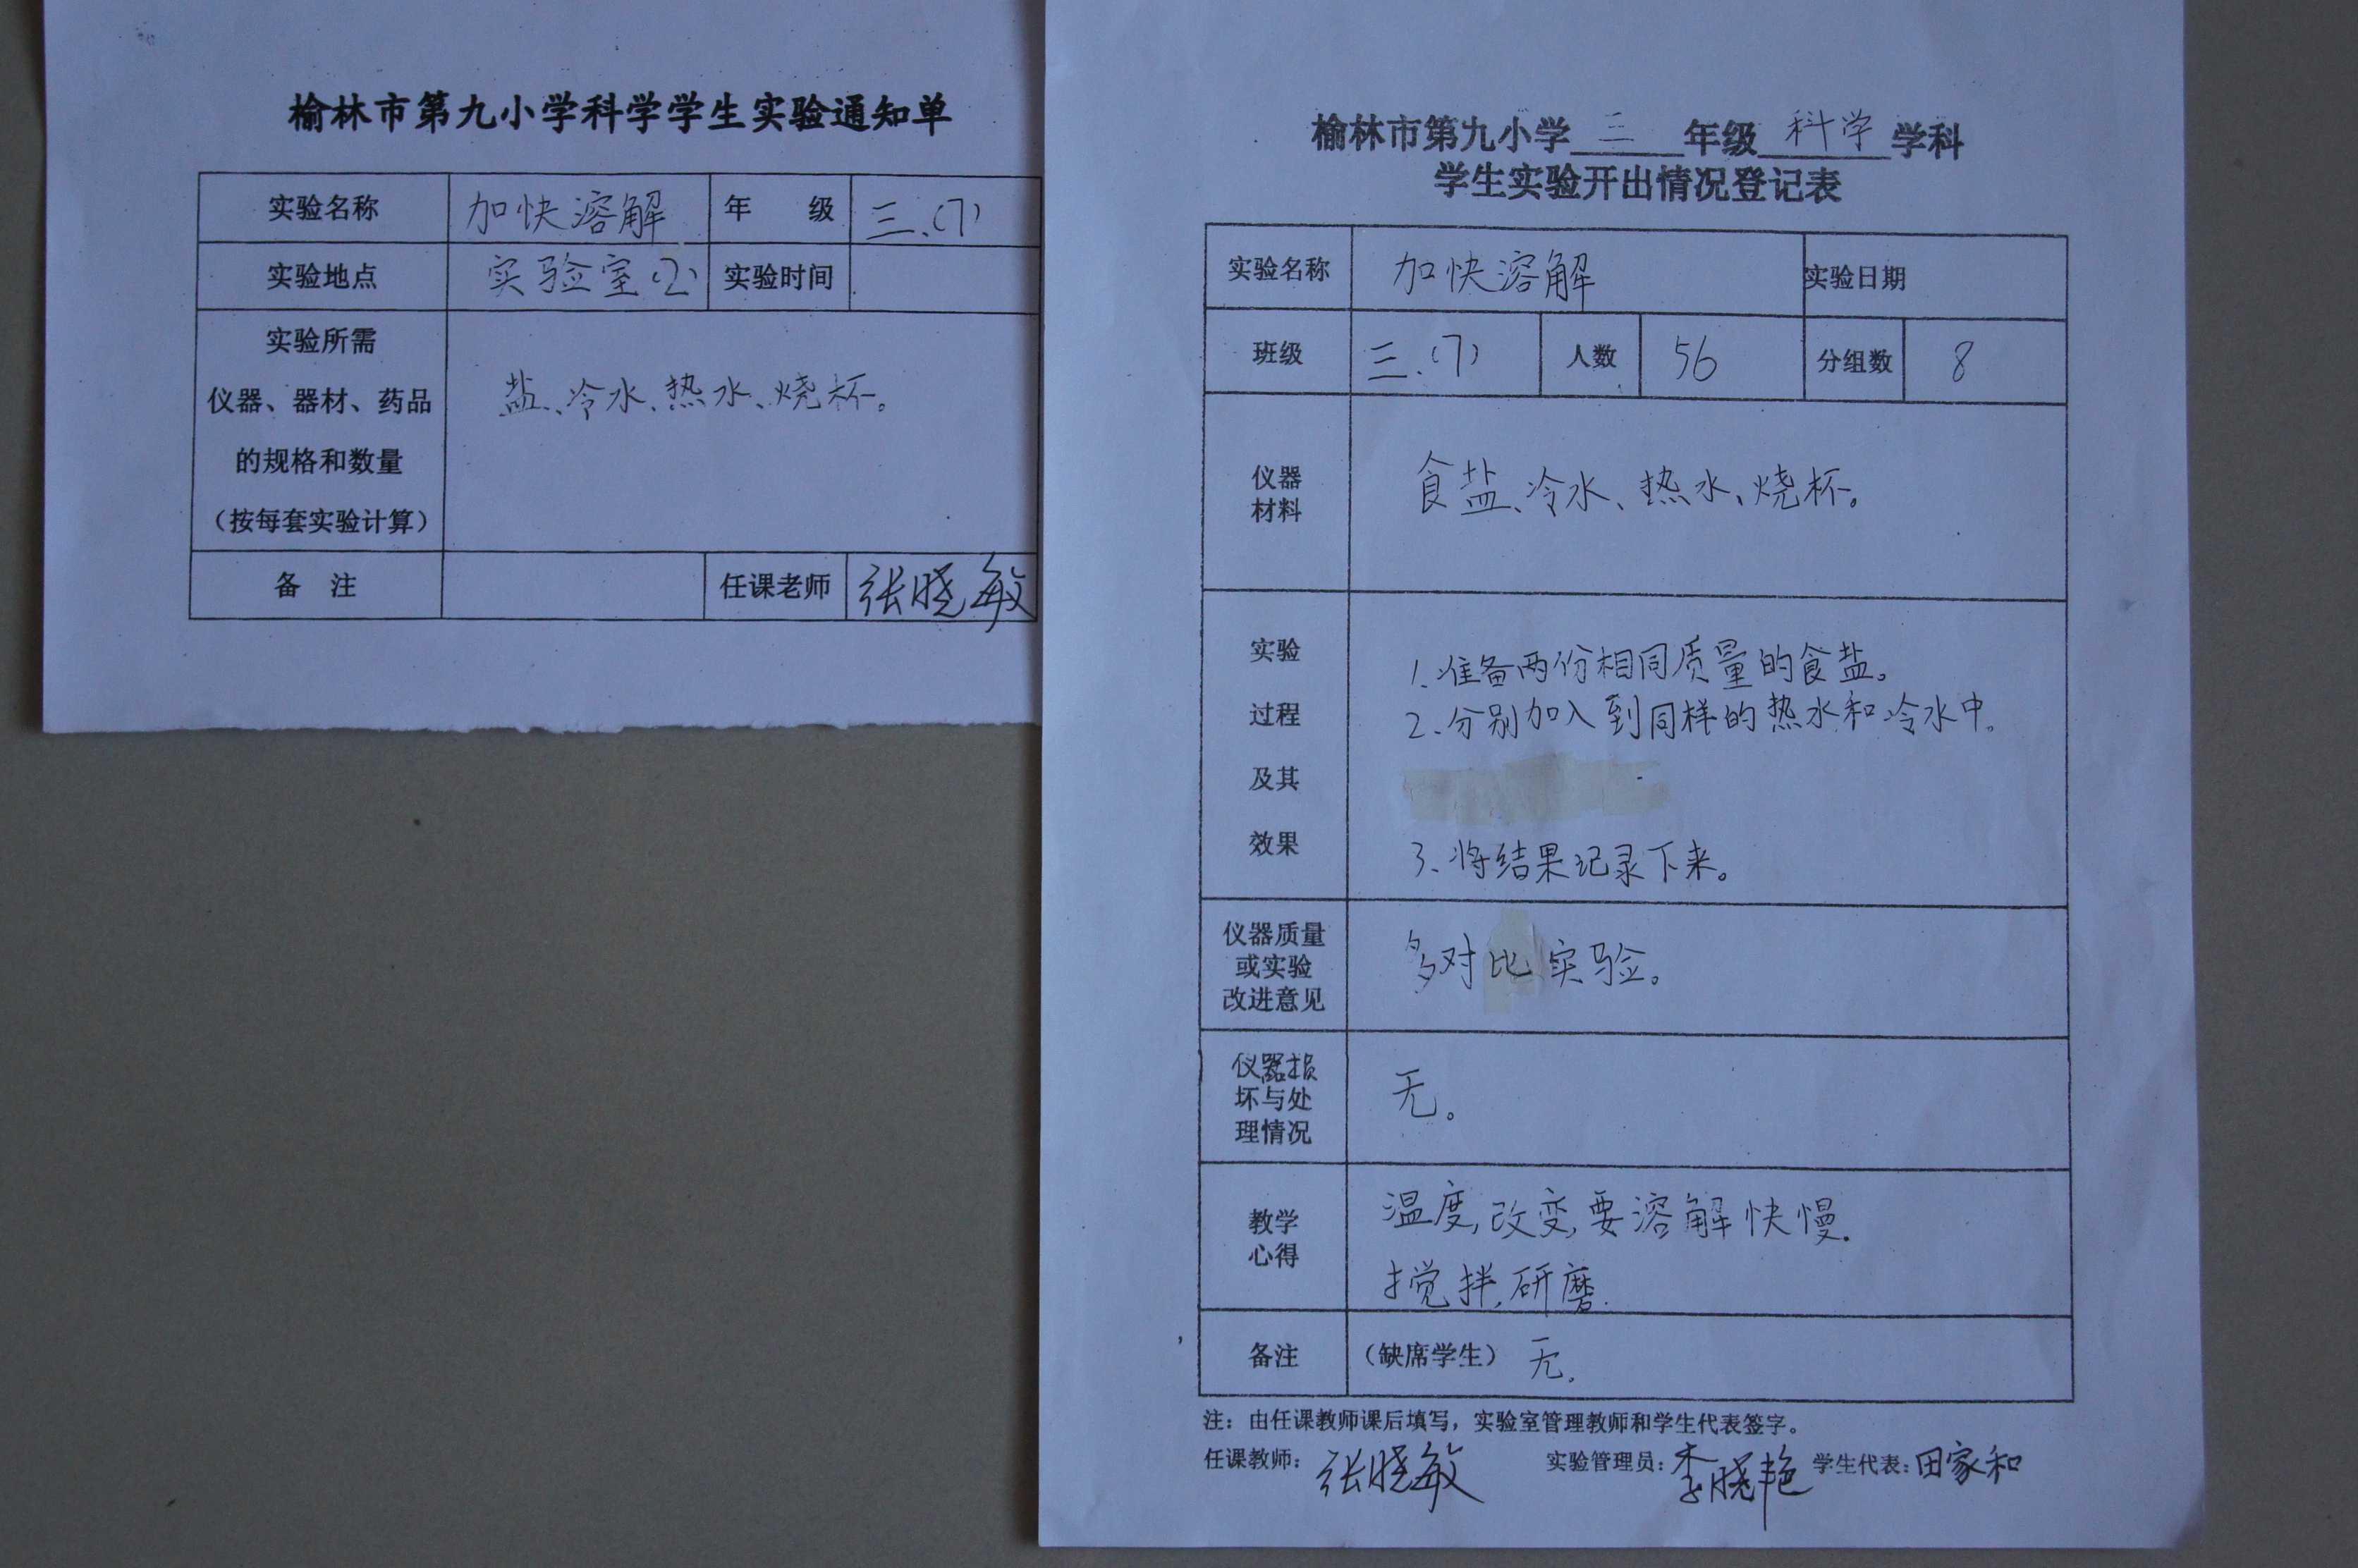 榆林市第九小学科学学生实验通知单
实验名称 加快溶解 年 级 三.(7)
实验地点 实验室(2) 实验时间
实验所需
仪器、器材、药品
的规格和数量
(按每套实验计算)
盐、冷水、热水、烧杯。
备 注 任课老师 张晓敏
榆林市第九小学 三 年级 科学 学科
学生实验开出情况登记表
实验名称 加快溶解 实验日期
班级 三.(7) 人数 56 分组数 8
仪器
材料
食盐、冷水、热水、烧杯。
实验
过程
及其
效果
1、准备两份相同质量的食盐。
2、分别加入到同样的热水和冷水中。
3、将结果记录下来。
仪器质量
或实验
改进意见
多对比实验。
仪器损
坏与处
理情况
无。
教学
心得
温度,改变,要溶解快慢.
搅拌,研磨.
备注 (缺席学生) 无.
注:由任课教师课后填写,实验室管理教师和学生代表签字。
任课教师:张晓敏 实验管理员:李晓艳 学生代表:田家和